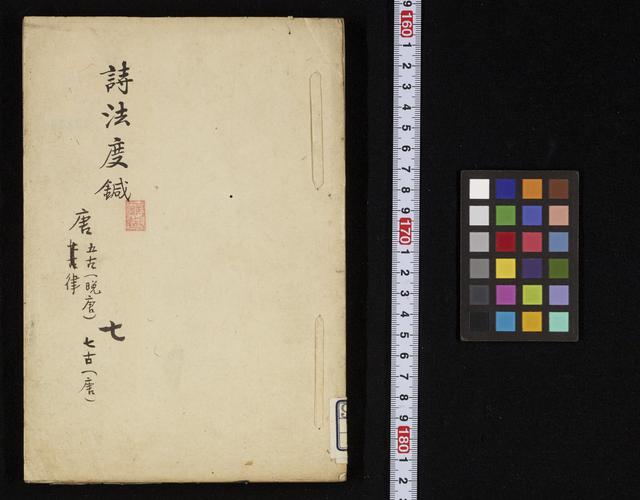 詩法度鍼
七
唐 五古(晩唐)
七古(唐)
律
9
160
1
2
3
4
5
6
7
8
9
170
1
2
3
4
5
6
7
8
9
180
1
2